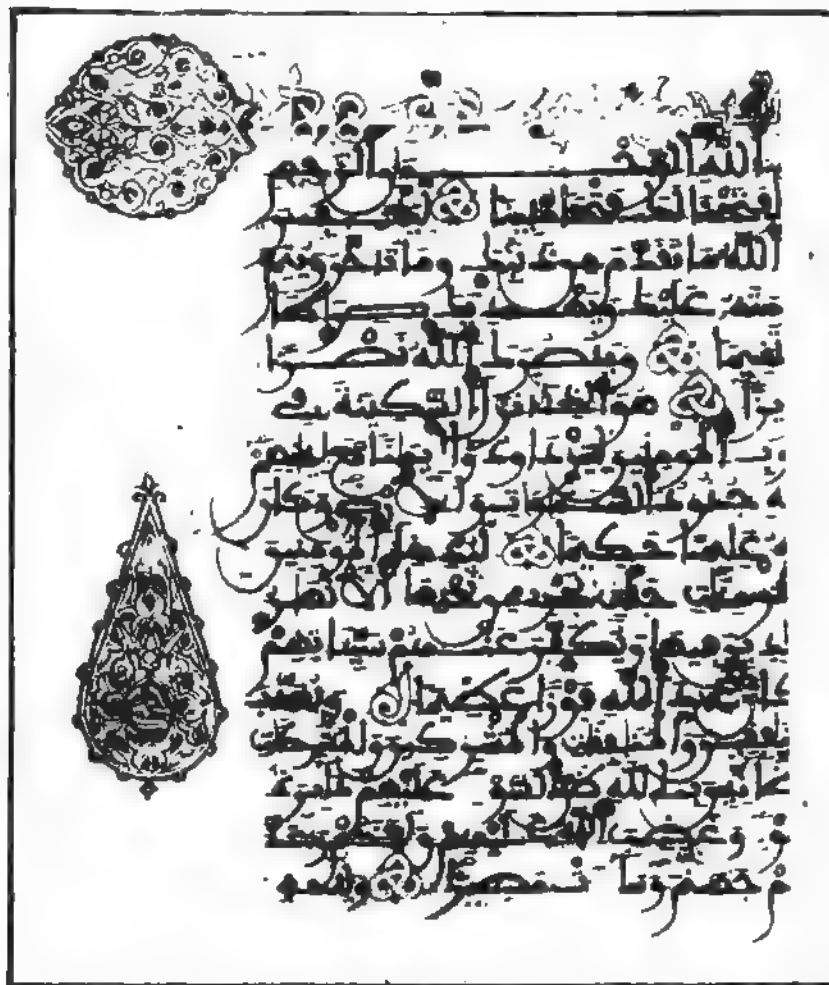 بسم الله الرحمن الرحيم
فتحنا لك فتحا مبينا ليغفر لك
الله ما تقدم من ذنبك وما تأخر ويتم نعـ
مته عليك ويهديك صراطا
مستقيما وينصرك الله نصرا عز
يزا هو الذي أنزل السكينة في
قلوب المومنين ليزدادوا إيمنا مع إيمنهم
ولله جنود السموت والارض وكان
الله عليما حكيما ليدخل المومنين
والمومنت جنت تجري من تحتها الانهر
خلدين فيها ويكفر عنهم سياتهم
وكان ذلك عند الله فوزا عظيما ويعذب
المنفقين والمنفقت والمشركين والمشركت
الظانين بالله ظن السوء عليهم دائرة
السوء وغضب الله عليهم ولعنهم وأعد
لهم جهنم وساءت مصيرا ولله